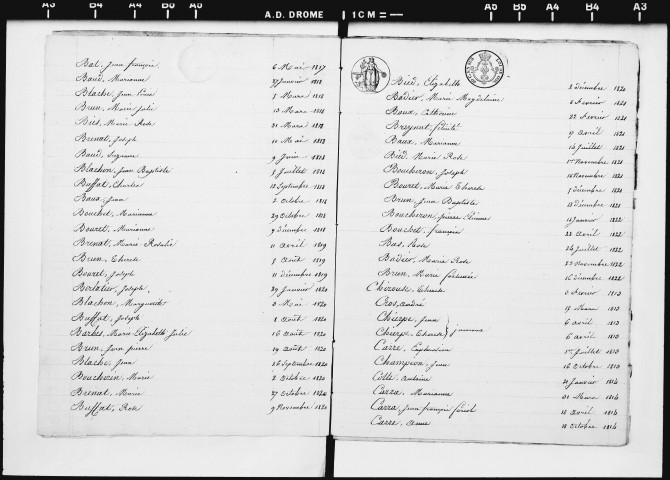 A3 B4 A4 B0 A5
A.D. DROME
1 CM =
A5 B5 A4 B4 A3
Bal, Jean françois 6 Mai 1817
Baud, Marianne 27 Janvier 1818
Blache, Jean 5 Mars 1818
Brun, Marie Julie 13 Mars 1818
Biès, Marie Rose 21 Mars 1818
Brenat, Joseph 10 Mai 1818
Baud, Suzanne 9 Juin 1818
Blachon, Jean Baptiste 5 Juillet 1818
Buffat, Charles 12 Septembre 1818
Baus, Jean 2 Octobre 1818
Bouchet, Marianne 29 Octobre 1818
Bouret, Marianne 9 décembre 1818
Brenat, Marie Rosalie 11 avril 1819
Brun, Therese 5 août 1819
Bouret, Joseph 11 décembre 1819
Joseph 29 Janvier 1820
Blachon, Marguerite 3 Mai 1820
Buffat, Joseph 8 août 1820
Barbes, Marie Elizabeth Julie 16 août 1820
Brun, Jean pierre 19 août 1820
Blache, Jean 26 Septembre 1820
Marie 2 Octobre 1820
Brenat, Marie 27 Octobre 1820
Buffat, Rose 9 Novembre 1820
Bied, Elizabeth 2 décembre 1820
Badier, Marie Magdelaine 8 fevrier 1821
Baux, Catherine 22 fevrier 1821
félicité 9 avril 1821
Baux, Marianne 14 Juillet 1821
Bied, Marie Rose Novembre 1821
Boucheron, Joseph 18 Novembre 1821
Bouret, Marie Therese 5 décembre 1821
Brun, Jean Baptiste 13 décembre 1821
Boucheron, pierre Etienne Janvier 1822
Bouchet, françois 22 avril 1822
Bus, Rose 24 Juillet 1822
Badier, Marie Rose 23 Novembre 1822
Brun, Marie 16 décembre 1822
Chirouse, Claude 8 fevrier 1813
Cros, andré 19 Mars 1813
Chieze, Jean 6 avril 1813
Chieze, Claude } jumeaux 6 avril 1813
Carre, Juillet 1813
Champion, Jean 16 Octobre 1813
Cotte, antoine 21 Janvier 1814
Carra, Marianne 21 Mars 1814
Carra, Jean françois 18 avril 1814
Carre, anne 18 Octobre 1814